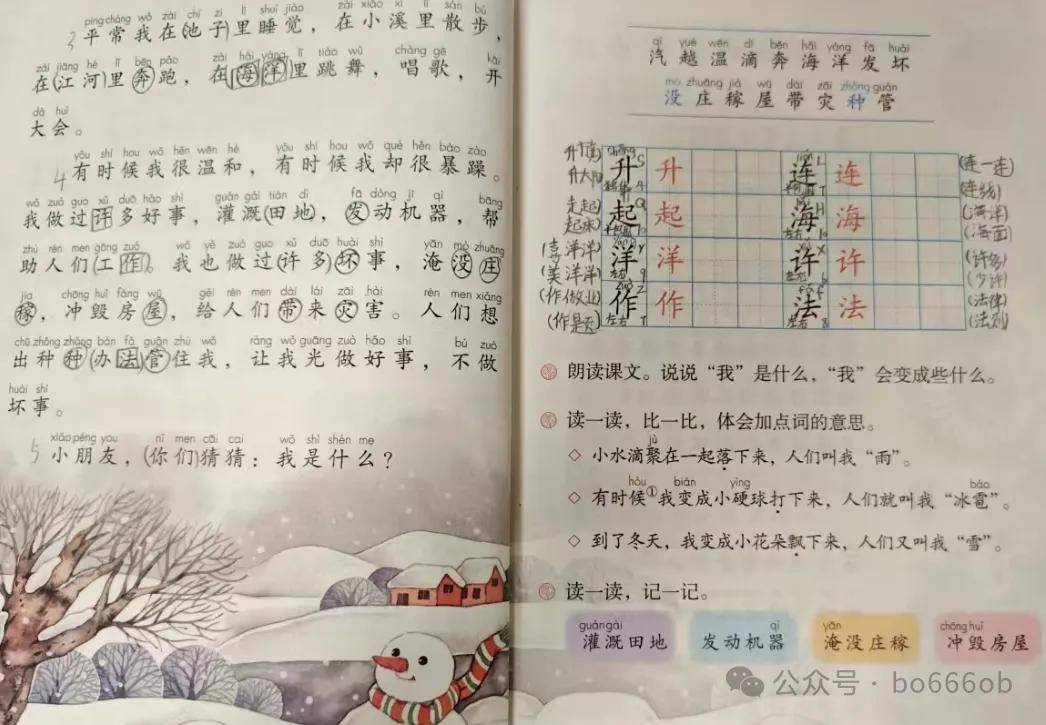 3 píng cháng wǒ zài chí zi lǐ shuì jiào zài xiǎo xī lǐ sàn bù
平常我在(池子)里睡觉，在小溪里散步，
zài jiāng hé lǐ bēn pǎo zài hǎi yáng lǐ tiào wǔ chàng gē
在(江河)里奔跑，在(海洋)里跳舞，唱歌，开
dà huì
大会。
yǒu shí hou wǒ hěn wēn hé yǒu shí hou wǒ què hěn bào zào
4 有时候我很温和，有时候我却很暴躁。
wǒ zuò guo xǔ duō hǎo shì guàn gài tián dì fā dòng jī qì bāng
我做过许多好事，灌溉(田地)，发动机器，帮
zhù rén men gōng zuò wǒ yě zuò guo xǔ duō huài shì yān mò zhuāng
助人们(工作)。我也做过(许多)坏事，淹没庄
jia chōng huǐ fáng wū gěi rén men dài lái zāi hài rén men xiǎng
稼，冲毁房屋，给人们带来灾害。人们想
chū zhǒng zhǒng bàn fǎ guǎn zhù wǒ ràng wǒ guāng zuò hǎo shì bú zuò
出种种(办法)管住我，让我光做好事，不做
huài shì
坏事。
xiǎo péng you nǐ men cāi cai wǒ shì shén me
5 小朋友，(你们)猜猜：我是什么？
qì yuè wēn dī bēn hǎi yáng fā huài
汽越温滴奔海洋发坏
mò zhuāng jià wū dài zāi zhǒng guǎn
没庄稼屋带灾种管
升 升 连 连 (连一连)
起 起 海 海 (连线)
起床) (海洋)
(海面)
(喜洋洋) 洋 洋 许 许 (许多)
(美洋洋) (少许)
(作业) 作 作 法 法 (法律)
左右 左右 (法则)
朗读课文。说说“我”是什么，“我”会变成些什么。
读一读，比一比，体会加点词的意思。
jù
◇ 小水滴聚在一起落下来，人们叫我“雨”。
hòu biàn yìng báo
◇ 有时候①我变成小硬球打下来，人们就叫我“冰雹”。
◇ 到了冬天，我变成小花朵飘下来，人们又叫我“雪”。
读一读，记一记。
guàn gài qì yān chōng huǐ
灌溉田地 发动机器 淹没庄稼 冲毁房屋
公众号 · bo666ob